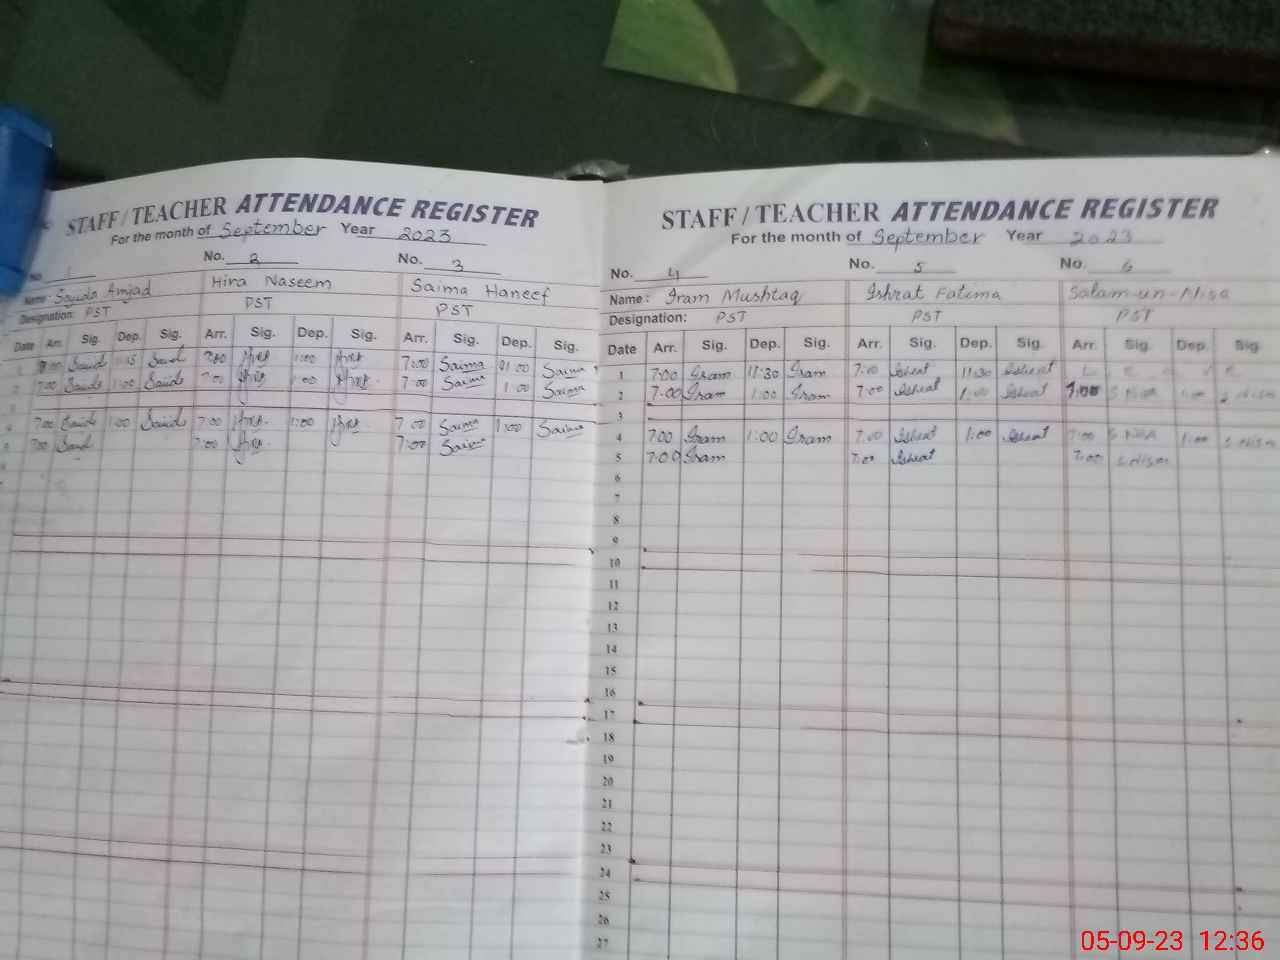 STAFF/TEACHER ATTENDANCE REGISTER
For the month of September Year 2023
No. 1 No. 2 No. 3
Name Sauda Amjad Hira Naseem Saima Haneef
Designation: PST PST PST
Date Arr. Sig. Dep. Sig. Arr. Sig. Dep. Sig. Arr. Sig. Dep. Sig.
1 7:00 Saud 11:15 Saud 7:00 1:00 7:00 Saima 01:00 Saima
2 7:00 Saud 1:00 Saud 7:00 1:00 7:00 Saima 1:00 Saima
3
4 7:00 Saud 1:00 Saud 7:00 1:00 7:00 Saima 1:00 Saima
5 7:00 Saud 7:00 7:00 Saima
STAFF/TEACHER ATTENDANCE REGISTER
For the month of September Year 2023
No. 4 No. 5 No. 6
Name: Iram Mushtaq Ishrat Fatima Salam-un-Nisa
Designation: PST PST PST
Date Arr. Sig. Dep. Sig. Arr. Sig. Dep. Sig. Arr. Sig. Dep. Sig
1 7:00 Iram 11:30 Iram 7:00 Ishrat 11:30 Ishrat L E A V E
2 7:00 Iram 1:00 Iram 7:00 Ishrat 1:00 Ishrat 7:00 S Nisa 1:00 S Nisa
3
4 7:00 Iram 1:00 Iram 7:00 Ishrat 1:00 Ishrat 7:00 S Nisa 1:00 S Nisa
5 7:00 Iram 7:00 Ishrat 7:00 S Nisa
6
7
8
9
10
11
12
13
14
15
16
17
18
19
20
21
22
23
24
25
26
27
05-09-23 12:36